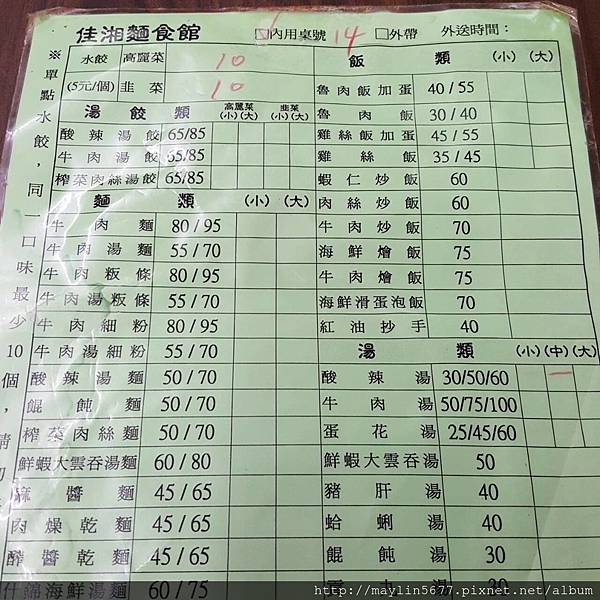 佳湘麵食館 ☑內用桌號 14 □外帶 外送時間：
※單點水餃，同一口味最少10個，請勿
水餃 高麗菜 10
(5元/個) 韭菜 10
湯餃類 高麗菜 (小)(大) 韭菜 (小)(大)
酸辣湯餃 65/85
牛肉湯餃 65/85
榨菜肉絲湯餃 65/85
麵類 (小) (大)
牛肉麵 80/95
牛肉湯麵 55/70
牛肉粄條 80/95
牛肉湯粄條 55/70
牛肉細粉 80/95
牛肉湯細粉 55/70
酸辣湯麵 50/70
餛飩麵 50/70
榨菜肉絲麵 50/70
鮮蝦大雲吞湯麵 60/80
麻醬麵 45/65
肉燥乾麵 45/65
醡醬乾麵 45/65
什錦海鮮湯麵 60/75
飯類 (小) (大)
魯肉飯加蛋 40/55
魯肉飯 30/40
雞絲飯加蛋 45/55
雞絲飯 35/45
蝦仁炒飯 60
肉絲炒飯 60
牛肉炒飯 70
海鮮燴飯 75
牛肉燴飯 75
海鮮滑蛋泡飯 70
紅油抄手 40
湯類 (小)(中)(大)
酸辣湯 30/50/60 一
牛肉湯 50/75/100
蛋花湯 25/45/60
鮮蝦大雲吞湯 50
豬肝湯 40
蛤蜊湯 40
餛飩湯 30
丸湯 30
http://maylin5677.pixnet.net/album